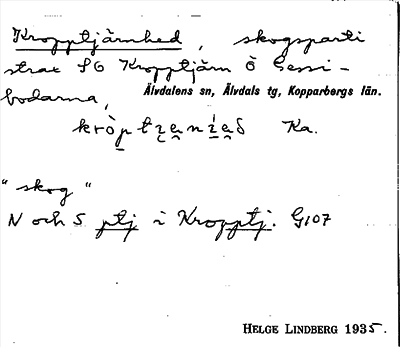 Kropptjärnhed, skogsparti
strax SO Kropptjärn Ö Gessi-
bodarna,
Älvdalens sn, Älvdals tg, Kopparbergs län.
Ka.
"skog"
N och S ptj i Kropptj. G107
HELGE LINDBERG 1935.